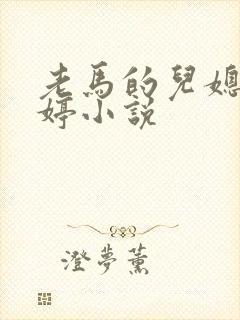 老馬的兒媳
婷小説
澄夢薰